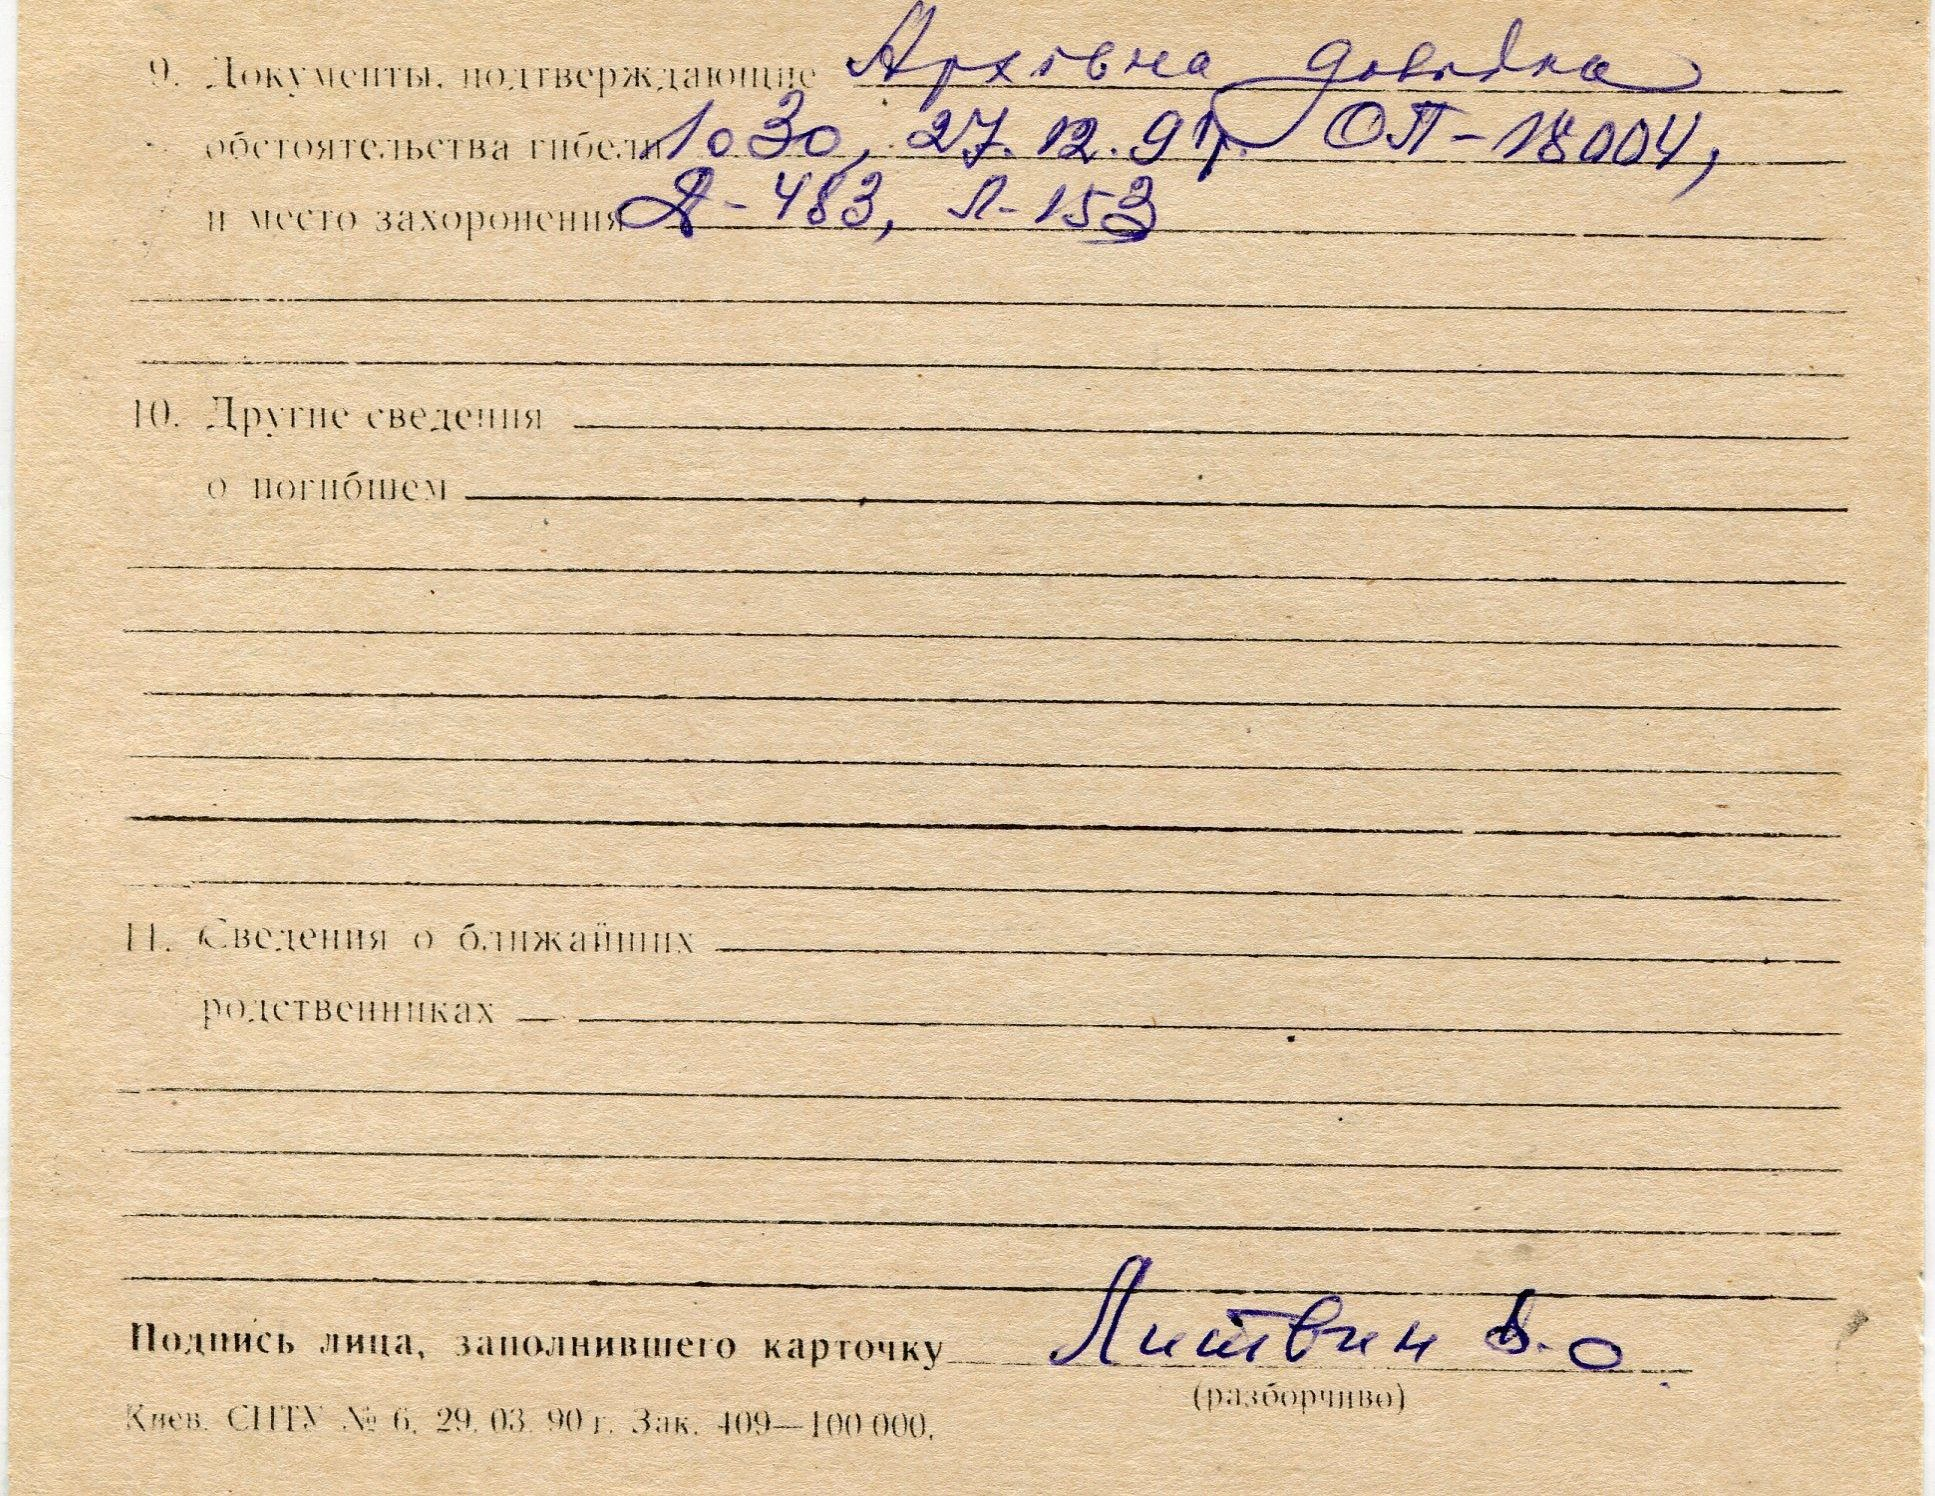 9. Документы, подтверждающие Архівна довідка
обстоятельства гибели 1030, 27.12.91р. ОП-18004,
и место захоронения Д-483, Л-153
10. Другие сведения
о погибшем
11. Сведения о ближайших
родственниках
Подпись лица, заполнившего карточку Литвин В.О
(разборчиво)
Киев. СПТУ № 6. 29. 03. 90 г. Зак. 409—100 000.